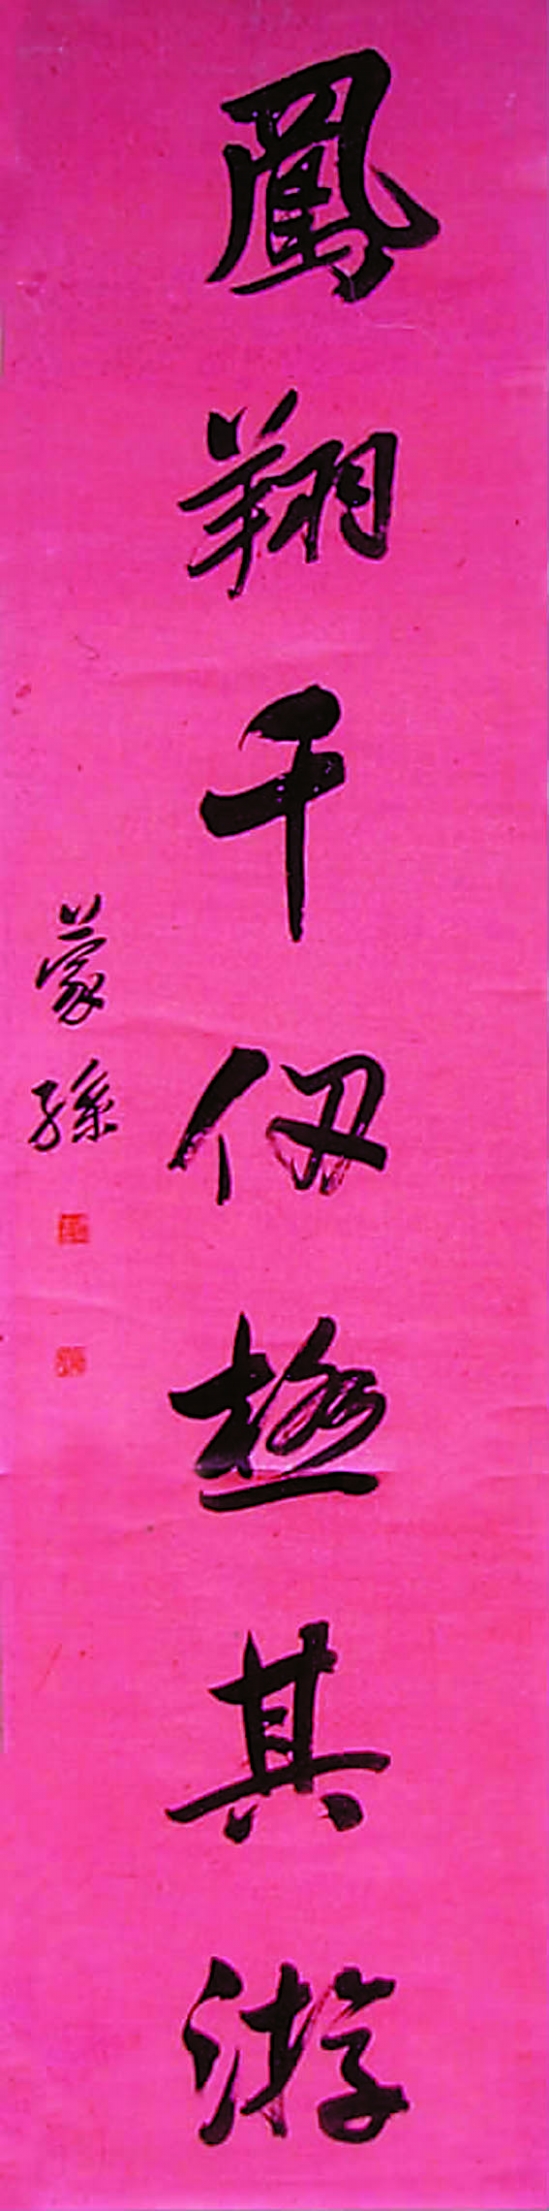 鳳翔千仞極其游
蒙孫